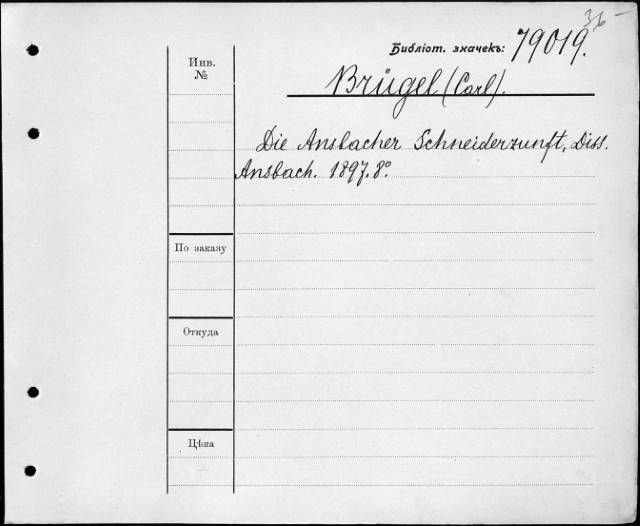 36 –
Библіот. значекъ: 79019.
Инв.
№
Brügel (Carl).
Die Ansbacher Schneiderzunft, Diss.
Ansbach. 1897. 8°
По заказу
Откуда
Цѣна